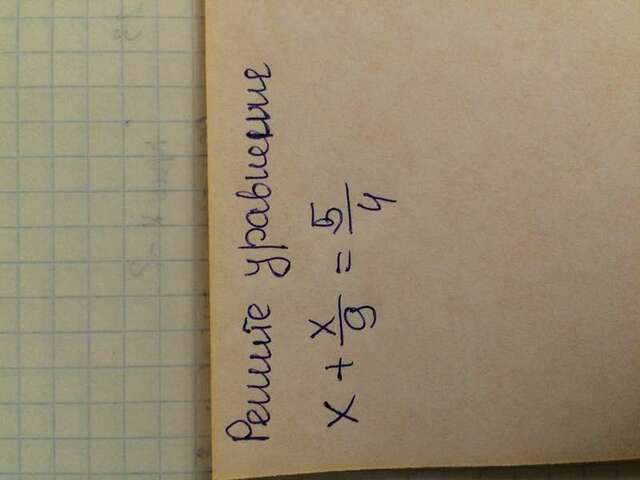 Решите уравнения
x + x/9 = 5/4